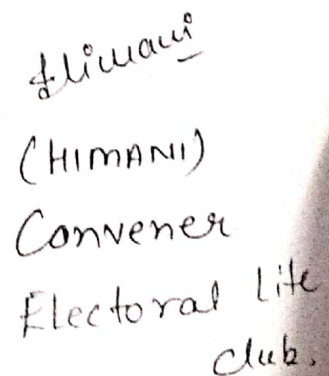 Himani
(HIMANI)
Convener
Electoral Lite
club.